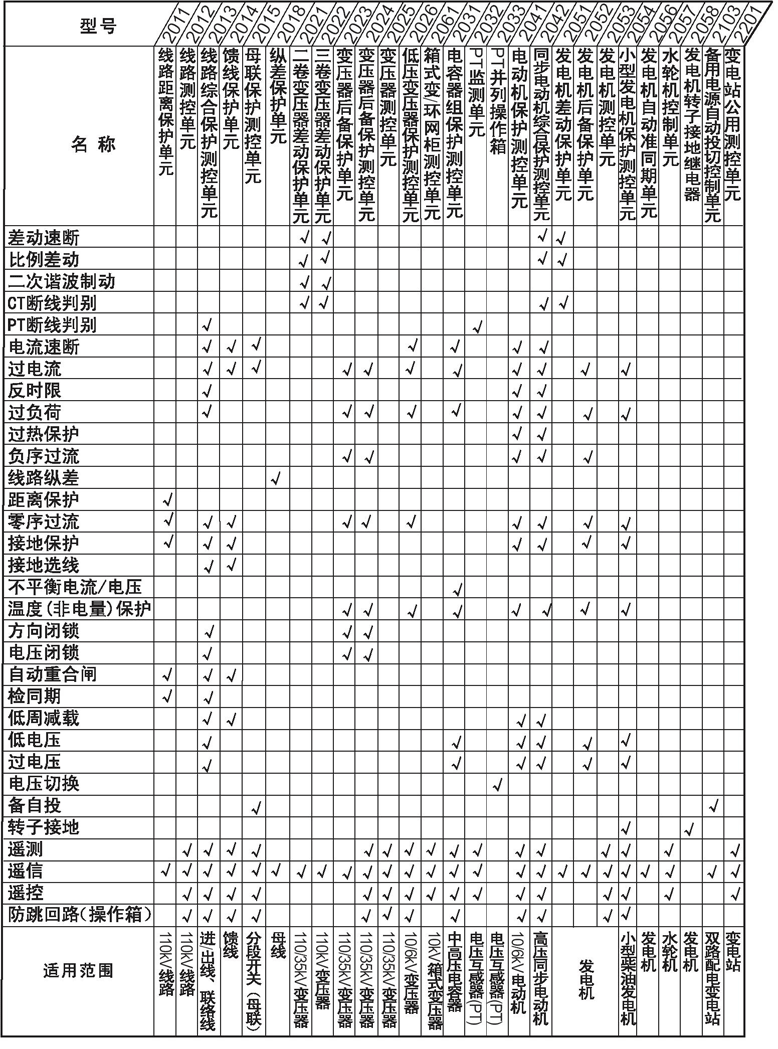 型号 2011 2012 2013 2014 2015 2018 2021 2022 2023 2024 2025 2026 2061 2031 2032 2033 2041 2042 2051 2052 2053 2054 2056 2057 2058 2103 2201
名称
线路距离保护单元
线路测控单元
线路综合保护测控单元
馈线保护单元
母联保护测控单元
纵差保护单元
二卷变压器差动保护单元
三卷变压器差动保护单元
变压器后备保护单元
变压器后备保护测控单元
变压器测控单元
低压变压器保护测控单元
箱式变/环网柜测控单元
电容器组保护测控单元
PT监测单元
PT并列操作箱
电动机保护测控单元
同步电动机综合保护测控单元
发电机差动保护单元
发电机后备保护单元
发电机测控单元
小型发电机保护测控单元
发电机自动准同期单元
水轮机控制单元
发电机转子接地继电器
备用电源自动投切控制单元
变电站公用测控单元
差动速断 √ √ √ √
比例差动 √ √ √ √
二次谐波制动 √ √
CT断线判别 √ √ √ √
PT断线判别 √ √
电流速断 √ √ √ √ √ √ √
过电流 √ √ √ √ √ √ √ √ √ √ √
反时限 √ √ √
过负荷 √ √ √ √ √ √ √ √ √
过热保护 √ √
负序过流 √ √ √ √ √
线路纵差 √
距离保护 √
零序过流 √ √ √ √ √ √ √ √ √ √
接地保护 √ √ √ √ √ √ √
接地选线 √ √
不平衡电流/电压 √
温度(非电量)保护 √ √ √ √ √ √ √ √
方向闭锁 √ √ √
电压闭锁 √ √ √
自动重合闸 √ √ √
检同期 √ √
低周减载 √ √ √ √
低电压 √ √ √ √ √ √
过电压 √ √ √ √ √ √
电压切换 √
备自投 √ √
转子接地 √ √
遥测 √ √ √ √ √ √ √ √ √ √ √ √ √ √ √ √
遥信 √ √ √ √ √ √ √ √ √ √ √ √ √ √ √ √ √ √ √ √ √ √ √ √ √
遥控 √ √ √ √ √ √ √ √ √ √ √ √ √ √ √ √
防跳回路(操作箱) √ √ √ √ √ √ √ √ √ √ √ √
适用范围
110kV线路
110kV线路
进/出线、联络线
馈线
分段开关(母联)
母线
110/35kV变压器
110kV变压器
110/35kV变压器
110/35kV变压器
110/35kV变压器
10/6kV变压器
10kV箱式变压器
中高压电容器
电压互感器(PT)
电压互感器(PT)
10/6kV电动机
高压同步电动机
发电机
小型柴油发电机
发电机
水轮机
发电机
双路配电变电站
变电站